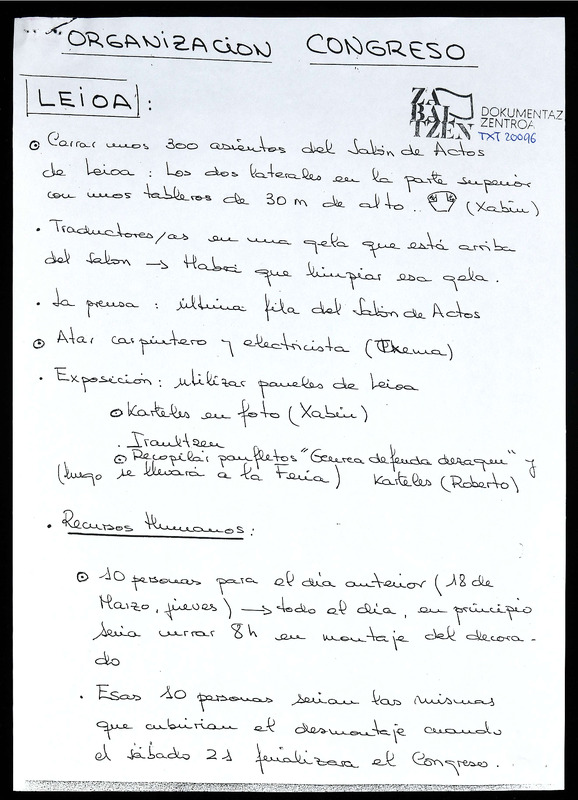 ORGANIZACION CONGRESO
LEIOA :
ZABALTZEN
DOKUMENTAZ
ZENTROA
TXT 20096
Cerrar unos 300 asientos del Salón de Actos
de Leioa : Los dos laterales en la parte superior
con unos tableros de 30 m de alto .. (Xabin)
. Traductores/as en una gela que está arriba
del salon → Habrá que limpiar esa gela .
. La prensa : última fila del Salón de Actos
Atar carpintero y electricista (Txema)
. Exposición : utilizar paneles de Leioa
Karteles en foto (Xabin)
. Iraultzen
Recopilar panfletos "Geurea defenda dezagun" y
(luego se llevará a la Feria) Karteles (Roberto)
. Recursos Humanos :
10 personas para el día anterior (18 de
Marzo, jueves) → todo el día, en principio
seria currar 8h en montaje del decora-
do
. Esas 10 personas serian las mismas
que cubririan el desmontaje cuando
el sábado 21 finalizara el Congreso .